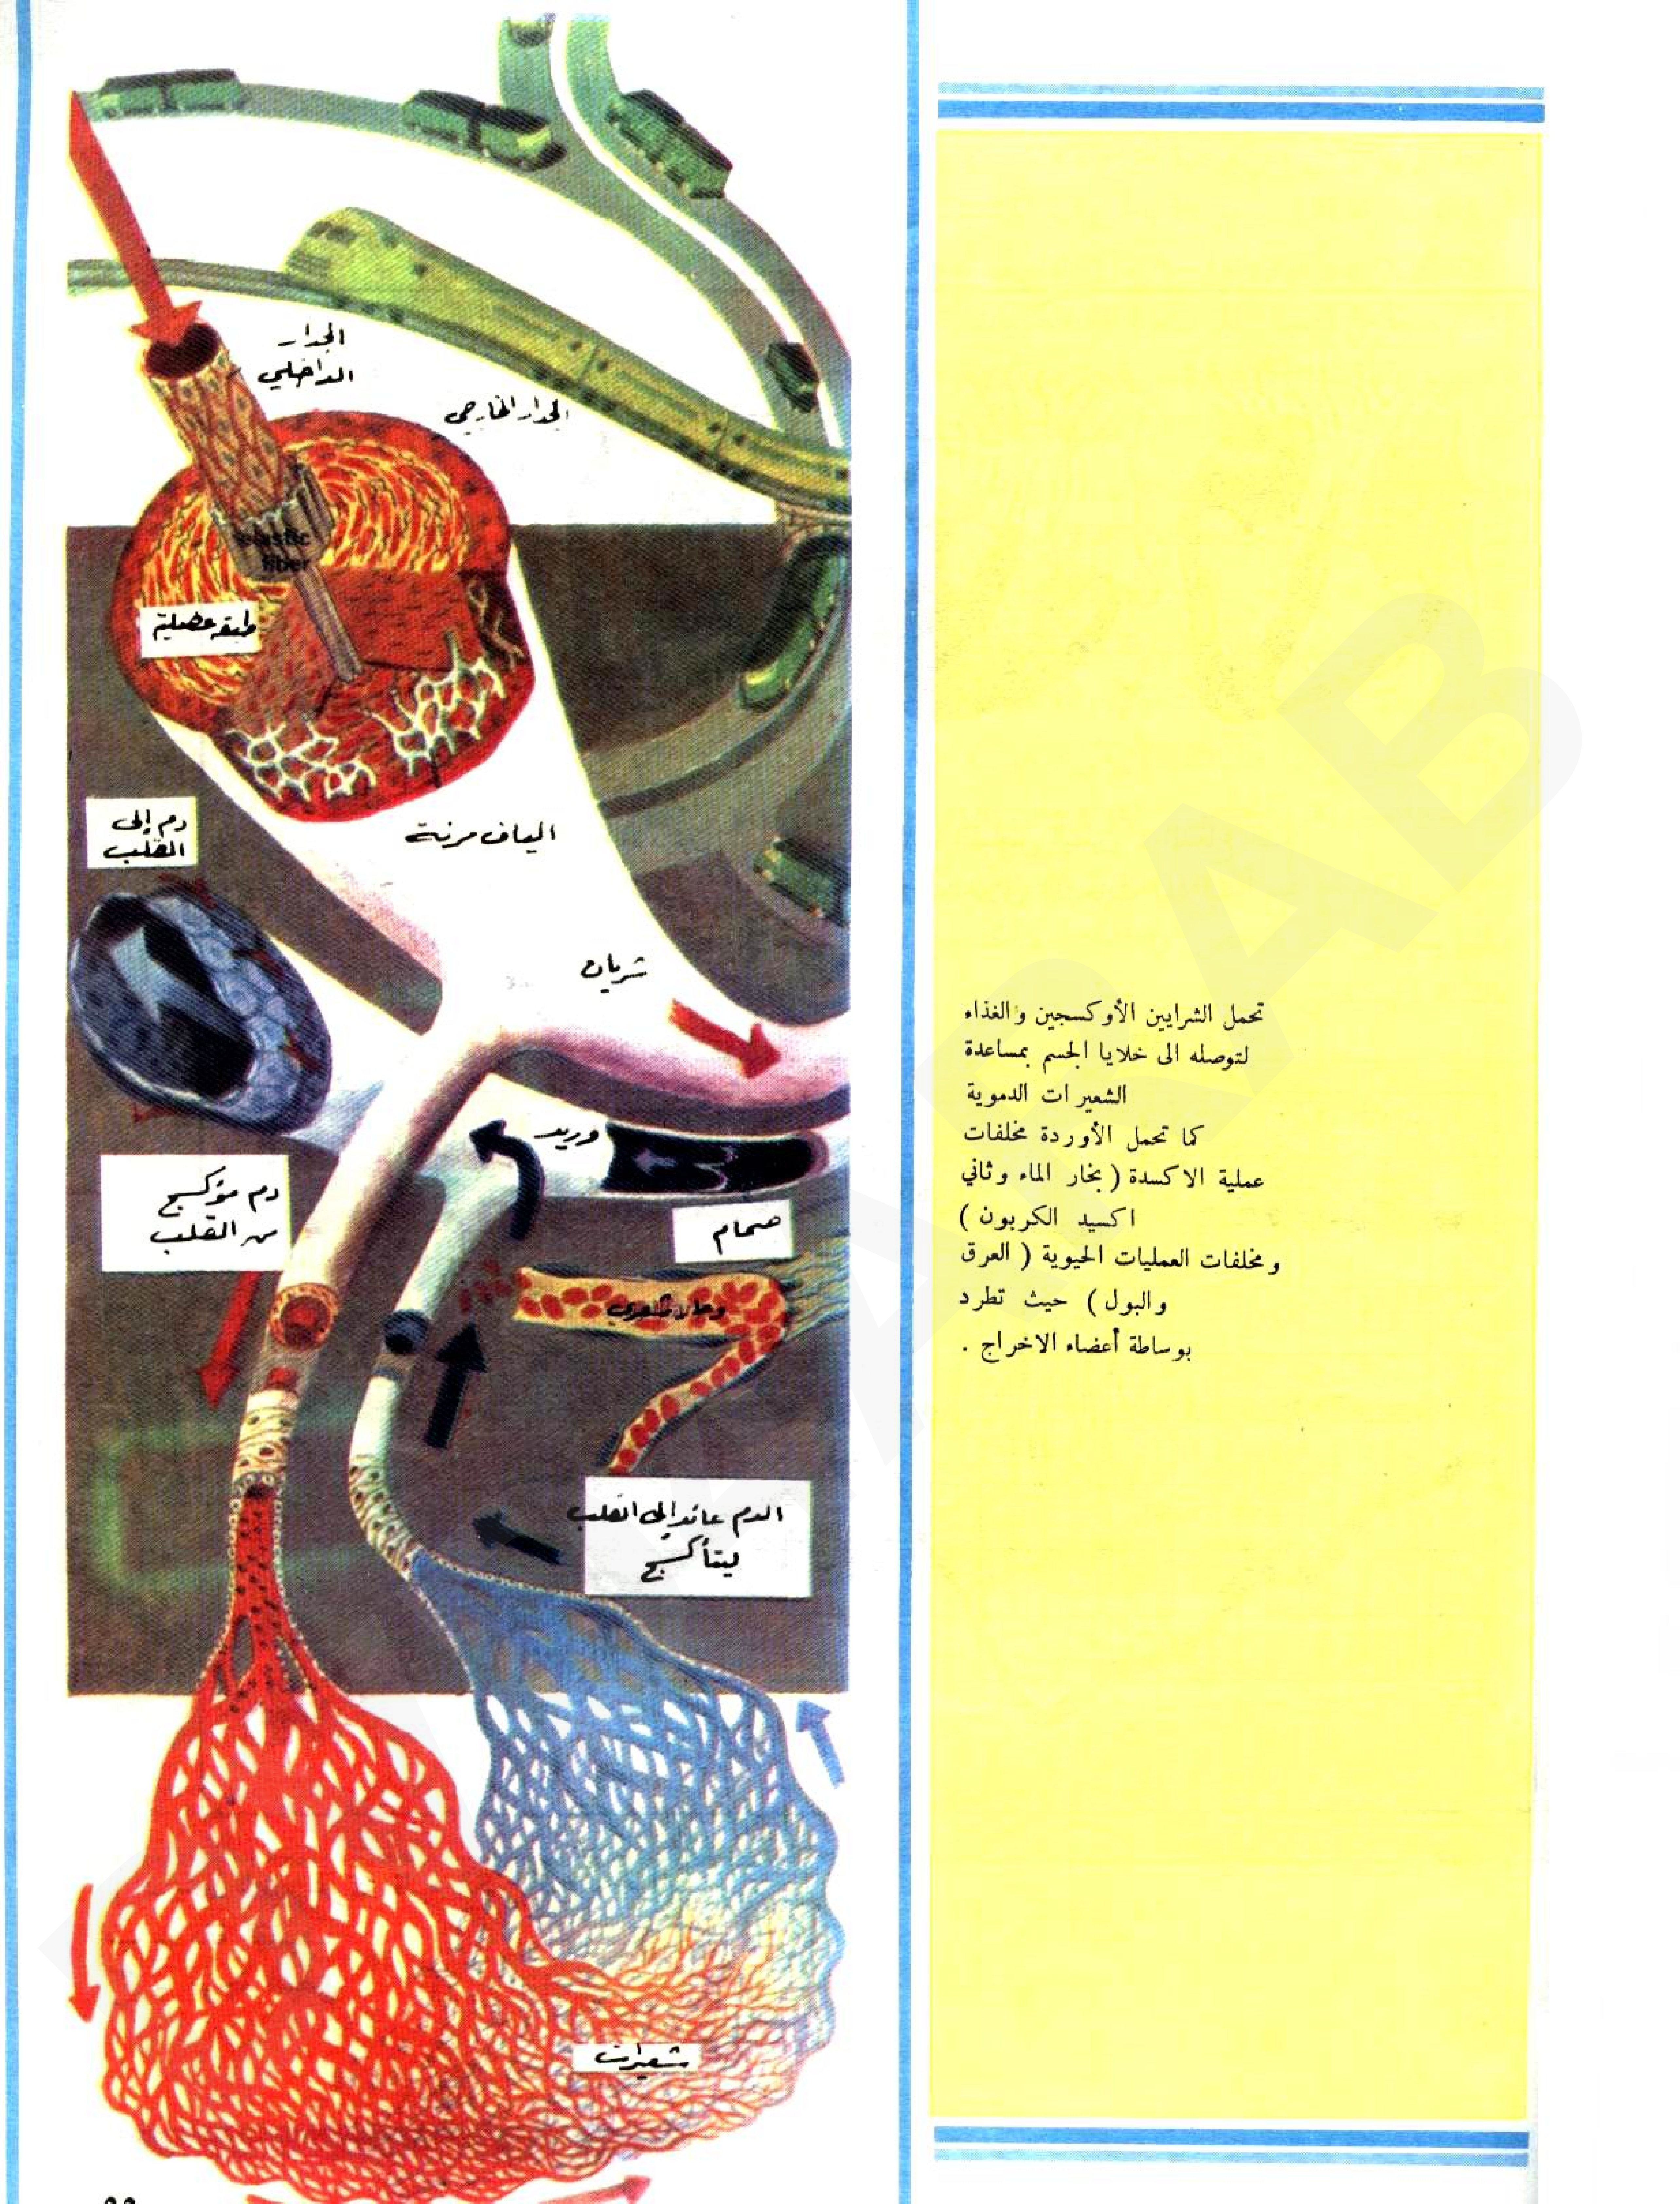 الجدار
الداخلي
الجدار الخارجي
elastic
fiber
طبقه عضلية
دم إلى
القلب
الياف مرنة
شريان
وريد
دم مؤكسج
من القلب
صمام
وعاء شعري
الدم عائد إلى القلب
ليتأكسج
شعيرات
تحمل الشرايين الأوكسجين والغذاء
لتوصله الى خلايا الجسم بمساعدة
الشعيرات الدموية
كما تحمل الأوردة مخلفات
عملية الاكسدة ( بخار الماء وثاني
اكسيد الكربون )
ومخلفات العمليات الحيوية ( العرق
والبول ) حيث تطرد
بوساطة أعضاء الاخراج .